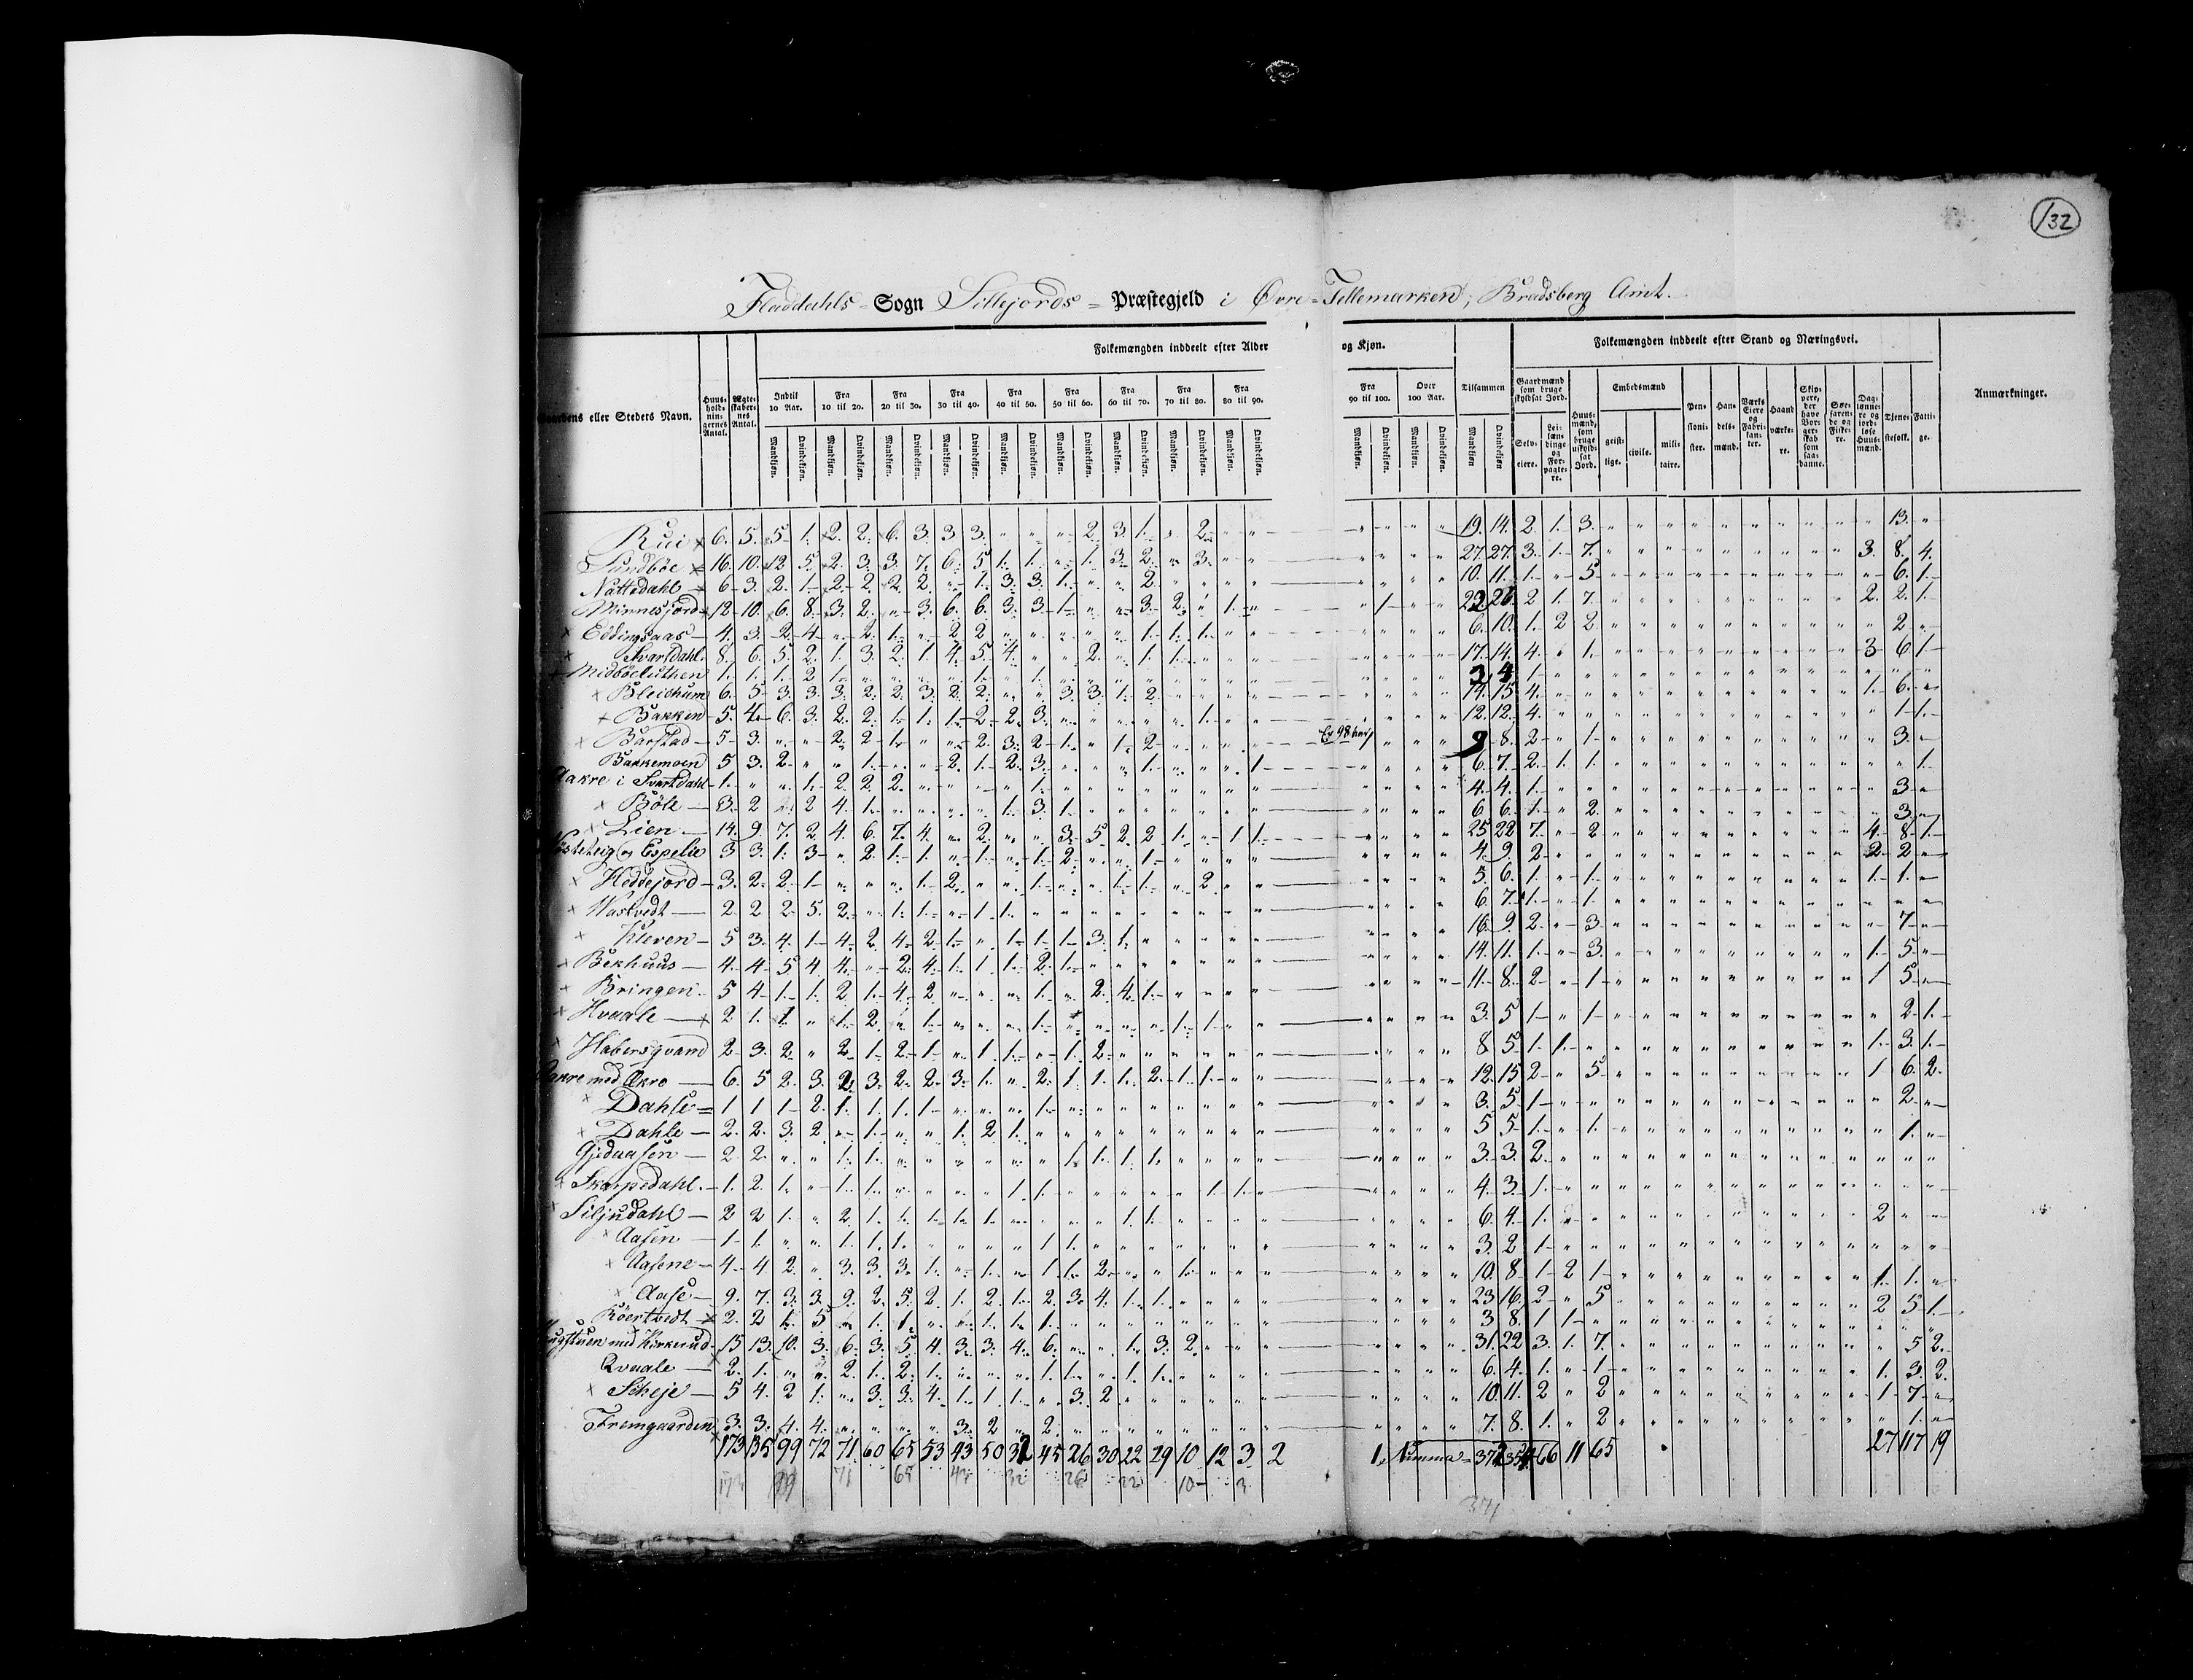 132
Fladdahls = Sogn Sillejords = Præstegjeld i Øvre = Tellemarken, Bradsberg Amt.
Gaardens eller Stedets Navn. Huus-hold-nin-gernes Antal. Ægte-skaber-nes Antal. Folkemængden inddeelt efter Alder og Kjøn. Tilsammen Folkemængden inddeelt efter Stand og Næringsvei. Anmærkninger.
Indtil 10 Aar. Fra 10 til 20. Fra 20 til 30. Fra 30 til 40. Fra 40 til 50. Fra 50 til 60. Fra 60 til 70. Fra 70 til 80. Fra 80 til 90. Fra 90 til 100. Over 100 Aar.
Gaardmænd som bruge skyldsat Jord. Selv-eiere. Lei-læn-dinge og For-pagte-re. Huus-mænd, som bruge uskyld-sat Jord. Embedsmænd geist-lige. civile. mili-taire. Pen-sioni-ster. Han-dels-mænd. Værks Eiere og Fabri-kan-ter. Haand værke-re. Skip-pere, der have Bor-ger-skab som saa-danne. Søe-faren-de og Fiske-re. Dag-lønne-re og jord-løse Huus-mænd. Tjene-stefolk. Fatti-ge.
Mandkjøn. Qvindekjøn.
Rui 6. 5. 5 1. 2. 2. 6. 3. 3 3. " " " 2. 3. 1. " 2 19. 14. 2. 1. 3. 13.
Sundböe 16. 10. 12 5. 2. 3. 3. 7. 6. 5 1. 1. " 1. 3 2. " 3. 27. 27. 3. 1. 7. 3. 8. 4.
Nattedahl 6 3. 2. 1. 2. 2. 2 2. " 1. 3. 3. 1. " " 2 10. 11. 1. " 5 6. 1.
Minnesjord 12 10. 6. 8. 3. 2. " 3. 6. 6. 3. 3. 1. " " 3. 2. " 1. 2. 1. 7. 2. 2. 1.
Eddingsaas 4. 3. 2. 4. " 2. 1. " 2 2 " " " " " 1. 1. 1. 6. 10. 1. 2 2. 2
Svartdahl 8. 6. 5. 2. 1. 3. 2. 1. 4. 5. 4. " " 2. " 1. 1. 17. 14. 4. " 1. 3. 6. 1
Midböeluthen 1. 1. 1. 2 1. 3 4 1
Bleichum 6. 5. 3. 3. 3. 2. 2. 3. 2. 2. " " 3. 3. 1. 2. 14. 15. 4. 1. 6.
Bakken 5. 4. 6. 3. 2. 2. 1. 1. 1. 2. 2. 3. 12. 12. 4. 1. 1.
Barstad 5 3. " " 2. 2. 1. " " 2. 3. 2. 1. " 1. 2. 9 8. 2. " 1. 3.
Bakkemoen 5 3. 2. " " 1. " " 2. 1. 2. 3. " " " 1. 6. 7. 2. 1. 1. 1.
Aakre i Svartdahl 1. " " 1. 2. 2. 2. " " " " 1. 4. 4. 1. 3.
Böle 3. 2 2 4 1. " " " " 1. 3. 1. 6 6. 1. " 2. 3.
Lien 14. 9. 7. 2. 4. 6. 7. 4. " 2. " " 3. 5. 2. 2. 1. " 1. 1. 25. 22. 7. " 2 4. 8. 1.
og Espelie 3 3. 1. 3. " 2. 1. 1. " 1. " 1. 2. " " 1. 4. 9. 2. 2. 2.
Heddejord 3. 2. 2. 1. " " " 1. 2. " " 1. " " 1. 1. " 2. 5. 6. 1. " 1. 1. 1.
Wastvedt 2. 2. 2. 5. 2. " 1. 1. " 1. 1. 6. 7. 1. " 1.
Kleven 5 3. 4. 1. 4. 2. 4. 2. 1. " 1. 1. 1. 3. 1. 16. 9. 2. " 3. 7.
Bekhuus 4. 4. 5 4. 4. " 2. 4. 1. 1. 1. 2. 1. 14. 11. 1. " 3. 1. 5.
Bringen 5 4. 1. 1. 2. 1. 4. 2. " " " 1. " 2. 4. 1. 11. 8. 2. " 1. 1 5
Hvaale 2. 1. 1 " 1. 2. " 1. " " " 1. " " " " 1. 1. 3. 5 1. " 1. 2. 1.
Habersqvand 2. 3. 2. " 2. 1. 2. 1. " 1 1. " 1. 2. 8 5. 1. 1. 1. 3. 1.
Aakre med Økro 6. 5 2. 3. 2. 3. 2. 2. 3. 1. " 2. 1. 1. 1. 2. 1. 1. 12. 15. 2. " 5. 1 6. 2.
Dahle 1 1 1. 2. 1. 1. 1. 1. " " " 1. 3. 5. 1. 2.
Dahle 2. 2. 3. 2. " 1. " " 1. 2. 1. 5 5. 1. " 1. 1.
Gjedaasen 2. 2. " " 1. 1. " " " " " " 1. 1. 1. 1. 3. 3. 2.
Skarpedahl 1. 2. 1. " 1. 1. " " " " 1. 1. " " " " " 1. 1. 4. 3. 1.
Siljudahl 2 2 1. " 2. 1. 1. 1. 1. 1. " " " " 1. 1. 6. 4. 1. 2
Aasen 1. 1. " " 1. 1. 1. " " " " 1. 1. 3. 2 1.
Aasene 4. 4 2. " 3. 3. 3. 1. " 1. " 1. 1. 2. " " 1. 10. 8. 1. 2 1. 1. 1.
Aase 9. 7. 3. 3. 9. 2. 5. 2 1. 2. 1. 2. 3. 4. 1. 1. 23. 16. 2. " 5. 2 5 1.
Röertvedt 2. 2 1. 5 " 1. 1. " " 1. 1. 1. 3 8. 1. 1.
med Kirkerud 15 13. 10. 3. 6. 3. 5. 4. 3. 3. 4. 6. " " 1. 3. 2. 31. 22. 3. 1. 7. 5 2.
Qvaale 2. 1. " " 2. 1. 2. 1. " " " 1. 1. " 1. 1. 6. 4. 1. " 1. 1. 3. 2.
Scheje 5 4. 2 1. " 3. 3. 4. 1. 1. 1. " 3. 2 10. 11. 2 " 2 1. 7.
Fremgaarden 3. 3. 4. 4. " " " " 3. 2 " 2. 7. 8. 1. " 2 1.
173 135 99 72 71 60 65 53 43 50 32 45 26 30 22 29 10 12 3. 2 1. Summa 66 11 65 27 117 19
173 99 71 65 43 32 26 22 10 3
371